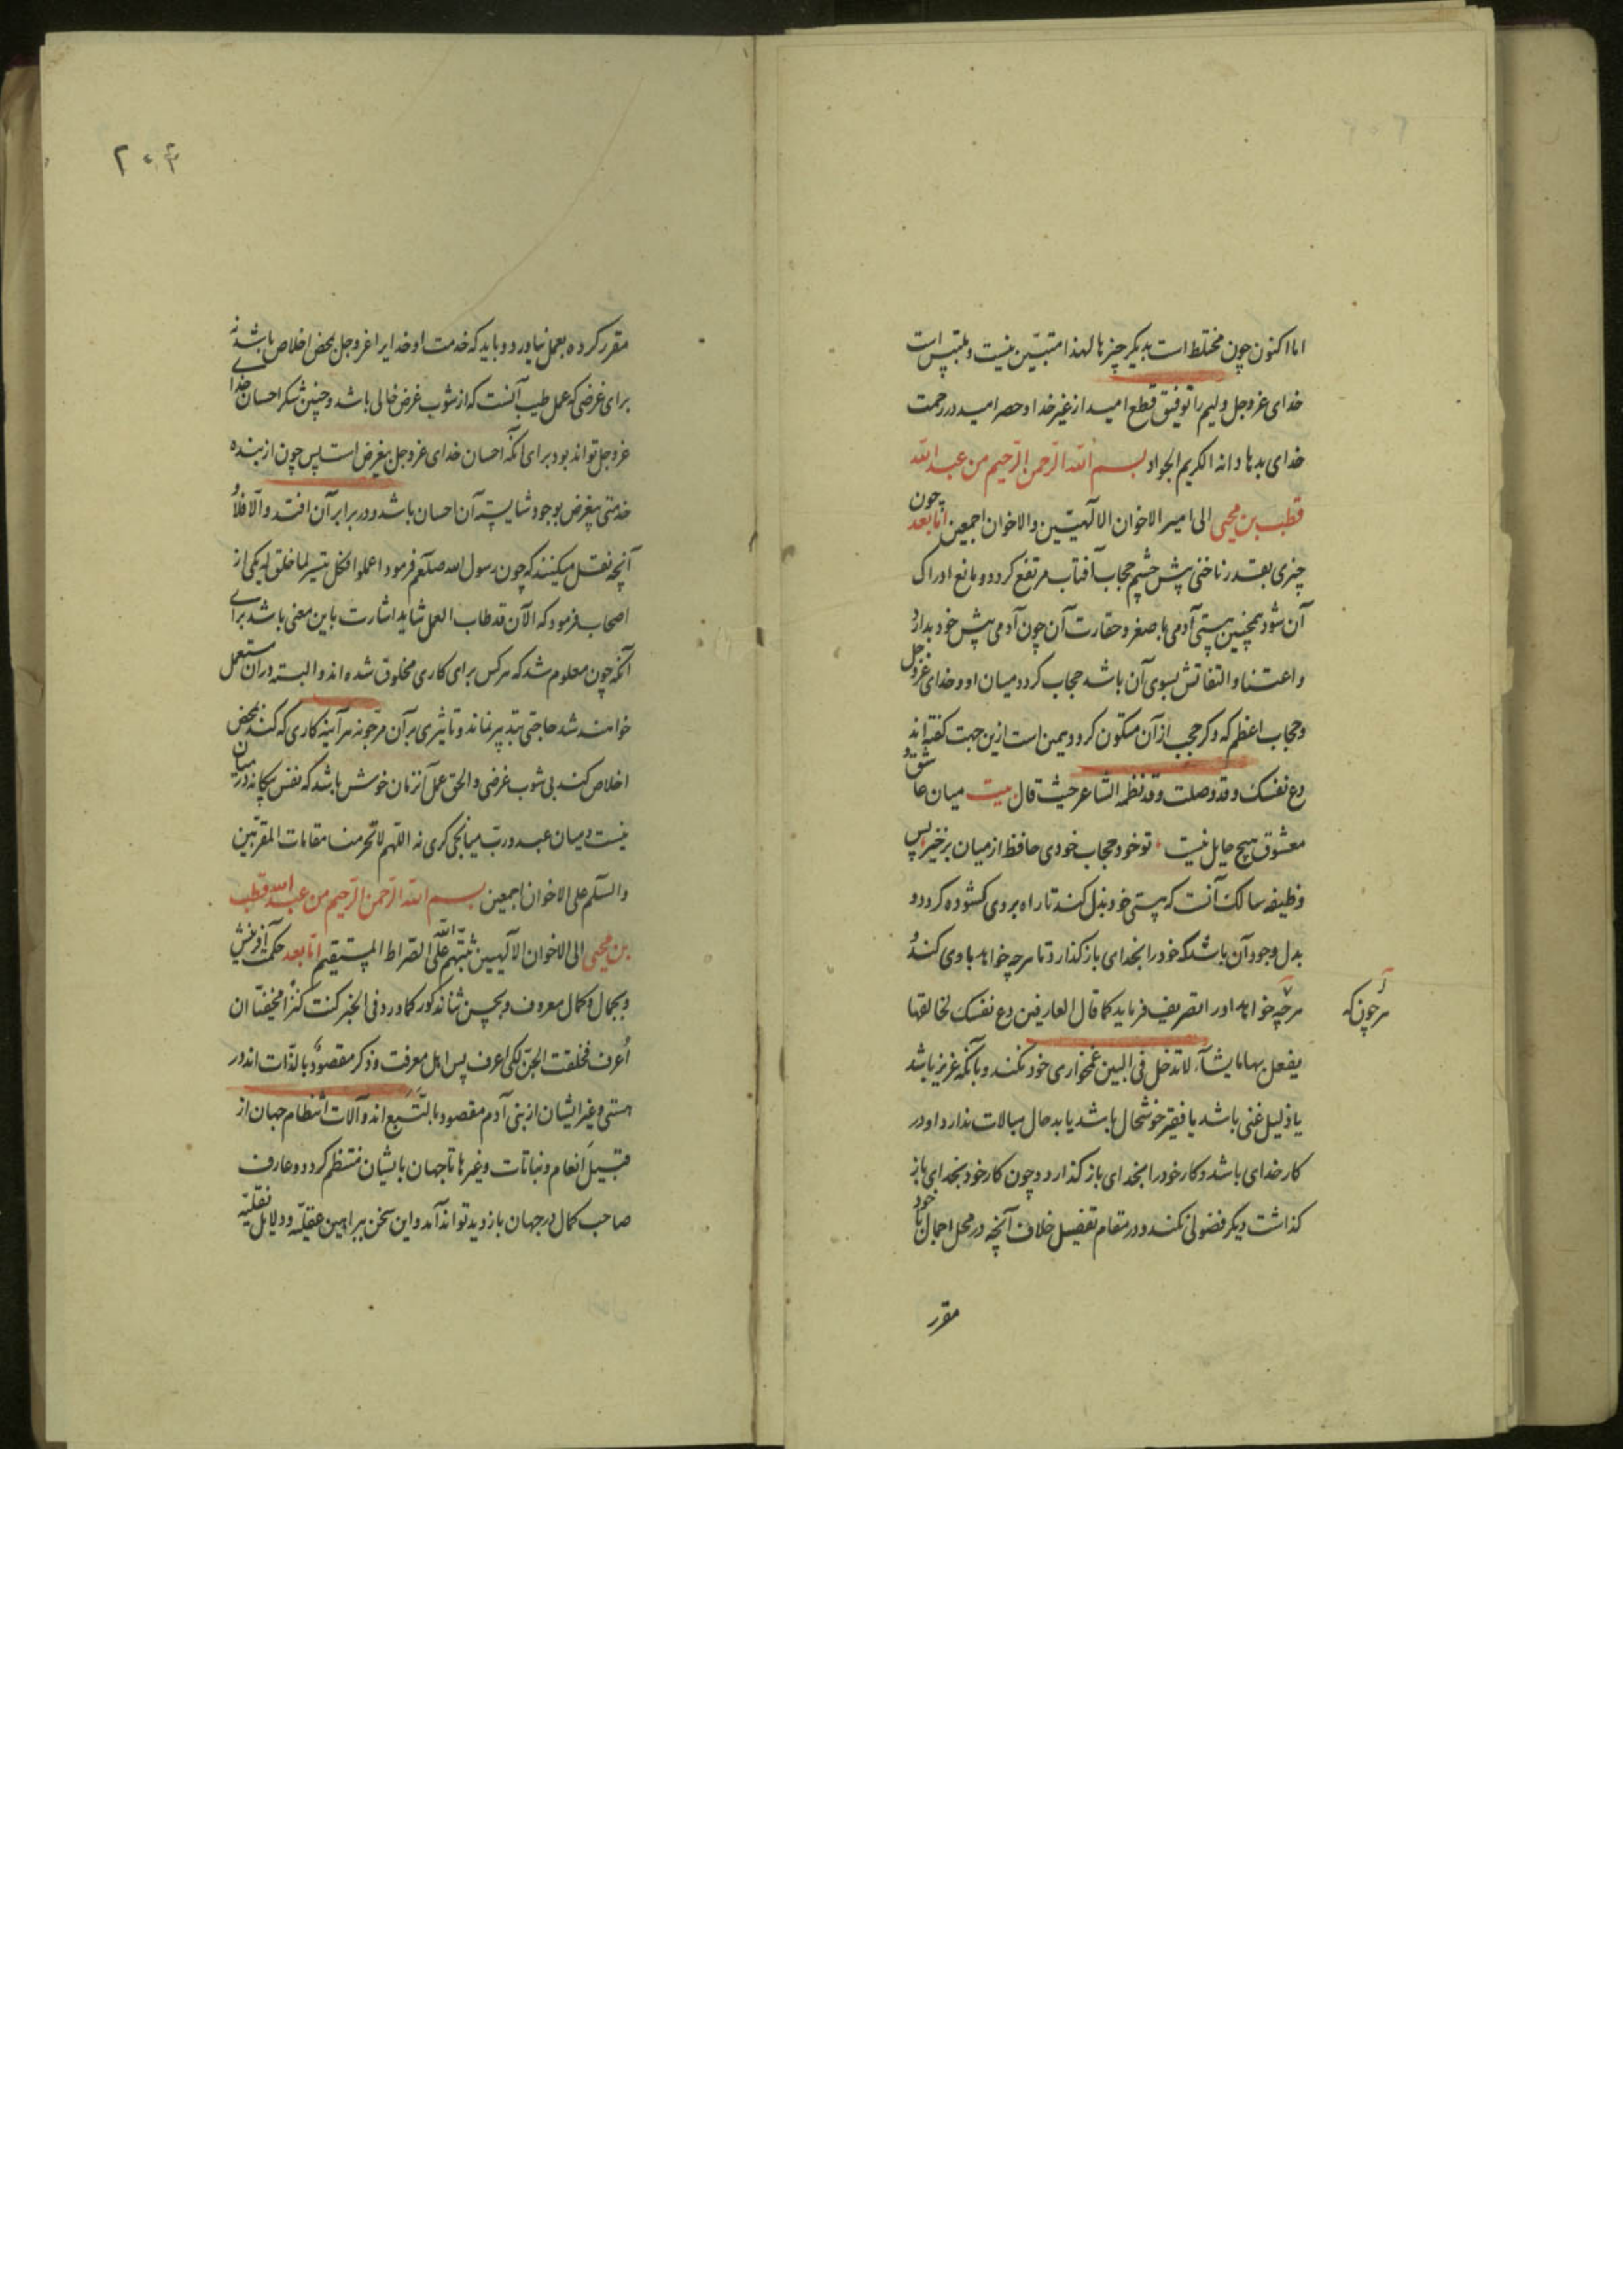 اما اکنون چون مختلط است بدیکر چیزها لهذا متبیّن نیست و ملتبس است
خدای عزوجل ولیم را توفیق قطع امید از غیر خدا و حصر امید در رحمت
خدای بدهاد انه الکریم الجواد بسم الله الرحمن الرحیم من عبد الله
قطب بن محیی الی امیر الاخوان الالهیّین والاخوان اجمعین اما بعد چون
چیزی بقدر ناخنی پیش چشم حجاب آفتاب مرتفع کردد و مانع ادراک
آن شود همچنین هستی آدمی با صغر و حقارت آن چون آدمی پیش خود بدارد
و اعتنا و التفاتش بسوی آن باشد حجاب کردد میان او و خدای عزوجل
و حجاب اعظم که دکر حجب از آن متکون کردد همین است ازین جهت کفته اند
دع نفسک و قد وصلت و قد نظمه الشاعر حیث قال بیت میان عاشق و
معشوق هیچ حایل نیست تو خود حجاب خودی حافظ از میان برخیز پس
وظیفه سالک آنست که هستی خود بذل کند تا راه بروی کشوده کردد و
بدل وجود آن باشد که خود را بخدای باز کذارد تا هرچه خواهد با وی کند و
هرچه خواهد او را تصریف فرماید کما قال العارفین دع نفسک لخالقها
هر چون که
یفعل بها ما یشآء لا تدخل فی البین غمخواری خود نکند و بآنکه عزیز باشد
یا ذلیل غنی باشد یا فقیر خوشحال باشد یا بدحال مبالات ندارد او در
کار خدای باشد و کار خود را بخدای باز کذارد و چون کار خود بخدای باز
کذاشت دیکر فضولی نکند و در مقام تفصیل خلاف آنچه در محل اجمال با خود
مقرر
۲۰۳
مقرر کرده بعمل نیاورد و باید که خدمت او خدایرا عزوجل بمحض اخلاص باشد نه
برای غرضی که عمل طیب آنست که از شوب غرض خالی باشد و چنین شکر احسان خدای
عزوجل تواند بود برای آنکه احسان خدای عزوجل بیغرض است پس چون از بنده
خدمتی بیغرض بوجود شایسته آن احسان باشد و در برابر آن افتد والّا فلا و
آنچه نقل میکنند که چون رسول الله صلعم فرمود اعملوا فکل میسر لما خلق له یکی از
اصحاب فرمود که الآن قد طاب العمل شاید اشارت باین معنی باشد برای
آنکه چون معلوم شد که هرکس برای کاری مخلوق شده اند و البسته در آن مستعمل
خواهند شد حاجتی بتدبیر نماند و تاثیری بر آن مرجو نه هر آینه کاری که کنند بمحض
اخلاص کنند بی شوب غرضی و الحق عمل آنزمان خوش باشد که نفس بیکانه در میان
نیست و میان عبد و ربّ میانجی کری نه اللّهم لا تحرمنا مقامات المقربین
والسّلم علی الاخوان اجمعین بسم الله الرّحمن الرّحیم من عبد الله قطب
بن محیی الی الاخوان الالهیین ثبّتهم الله علی الصّراط المستقیم امّا بعد حکمت آفرینش
و بجمال و کمال معروف و بحسن ثنا مذکور کما ورد فی الخبر کنت کنزًا مخفیّا ان
اُعرف فخلقت الجنّ لکی اعرف پس اهل معرفت و ذکر مقصود بالذّات اند در
هستی و غیر ایشان از بنی آدم مقصود بالتّبع اند و آلات انتظام جهان از
قبیل انعام و نباتات و غیرها تا جهان بایشان منتظم کردد و عارف
صاحب کمال در جهان بازدید تواند آمد و این سخن ببراهین عقلیّه و دلایل نقلیّه